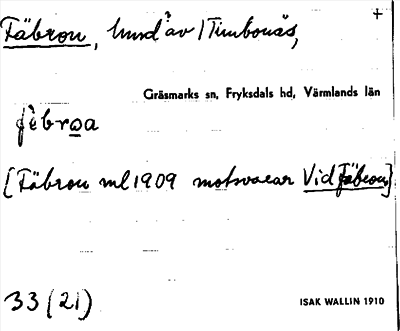 Fäbron, hund av Timbonäs,
Gräsmarks sn, Fryksdals hd, Värmlands län
fèbrωa
[Fäbron ml 1909 motsvarar Vid Fäbron]
33 (21)
ISAK WALLIN 1910